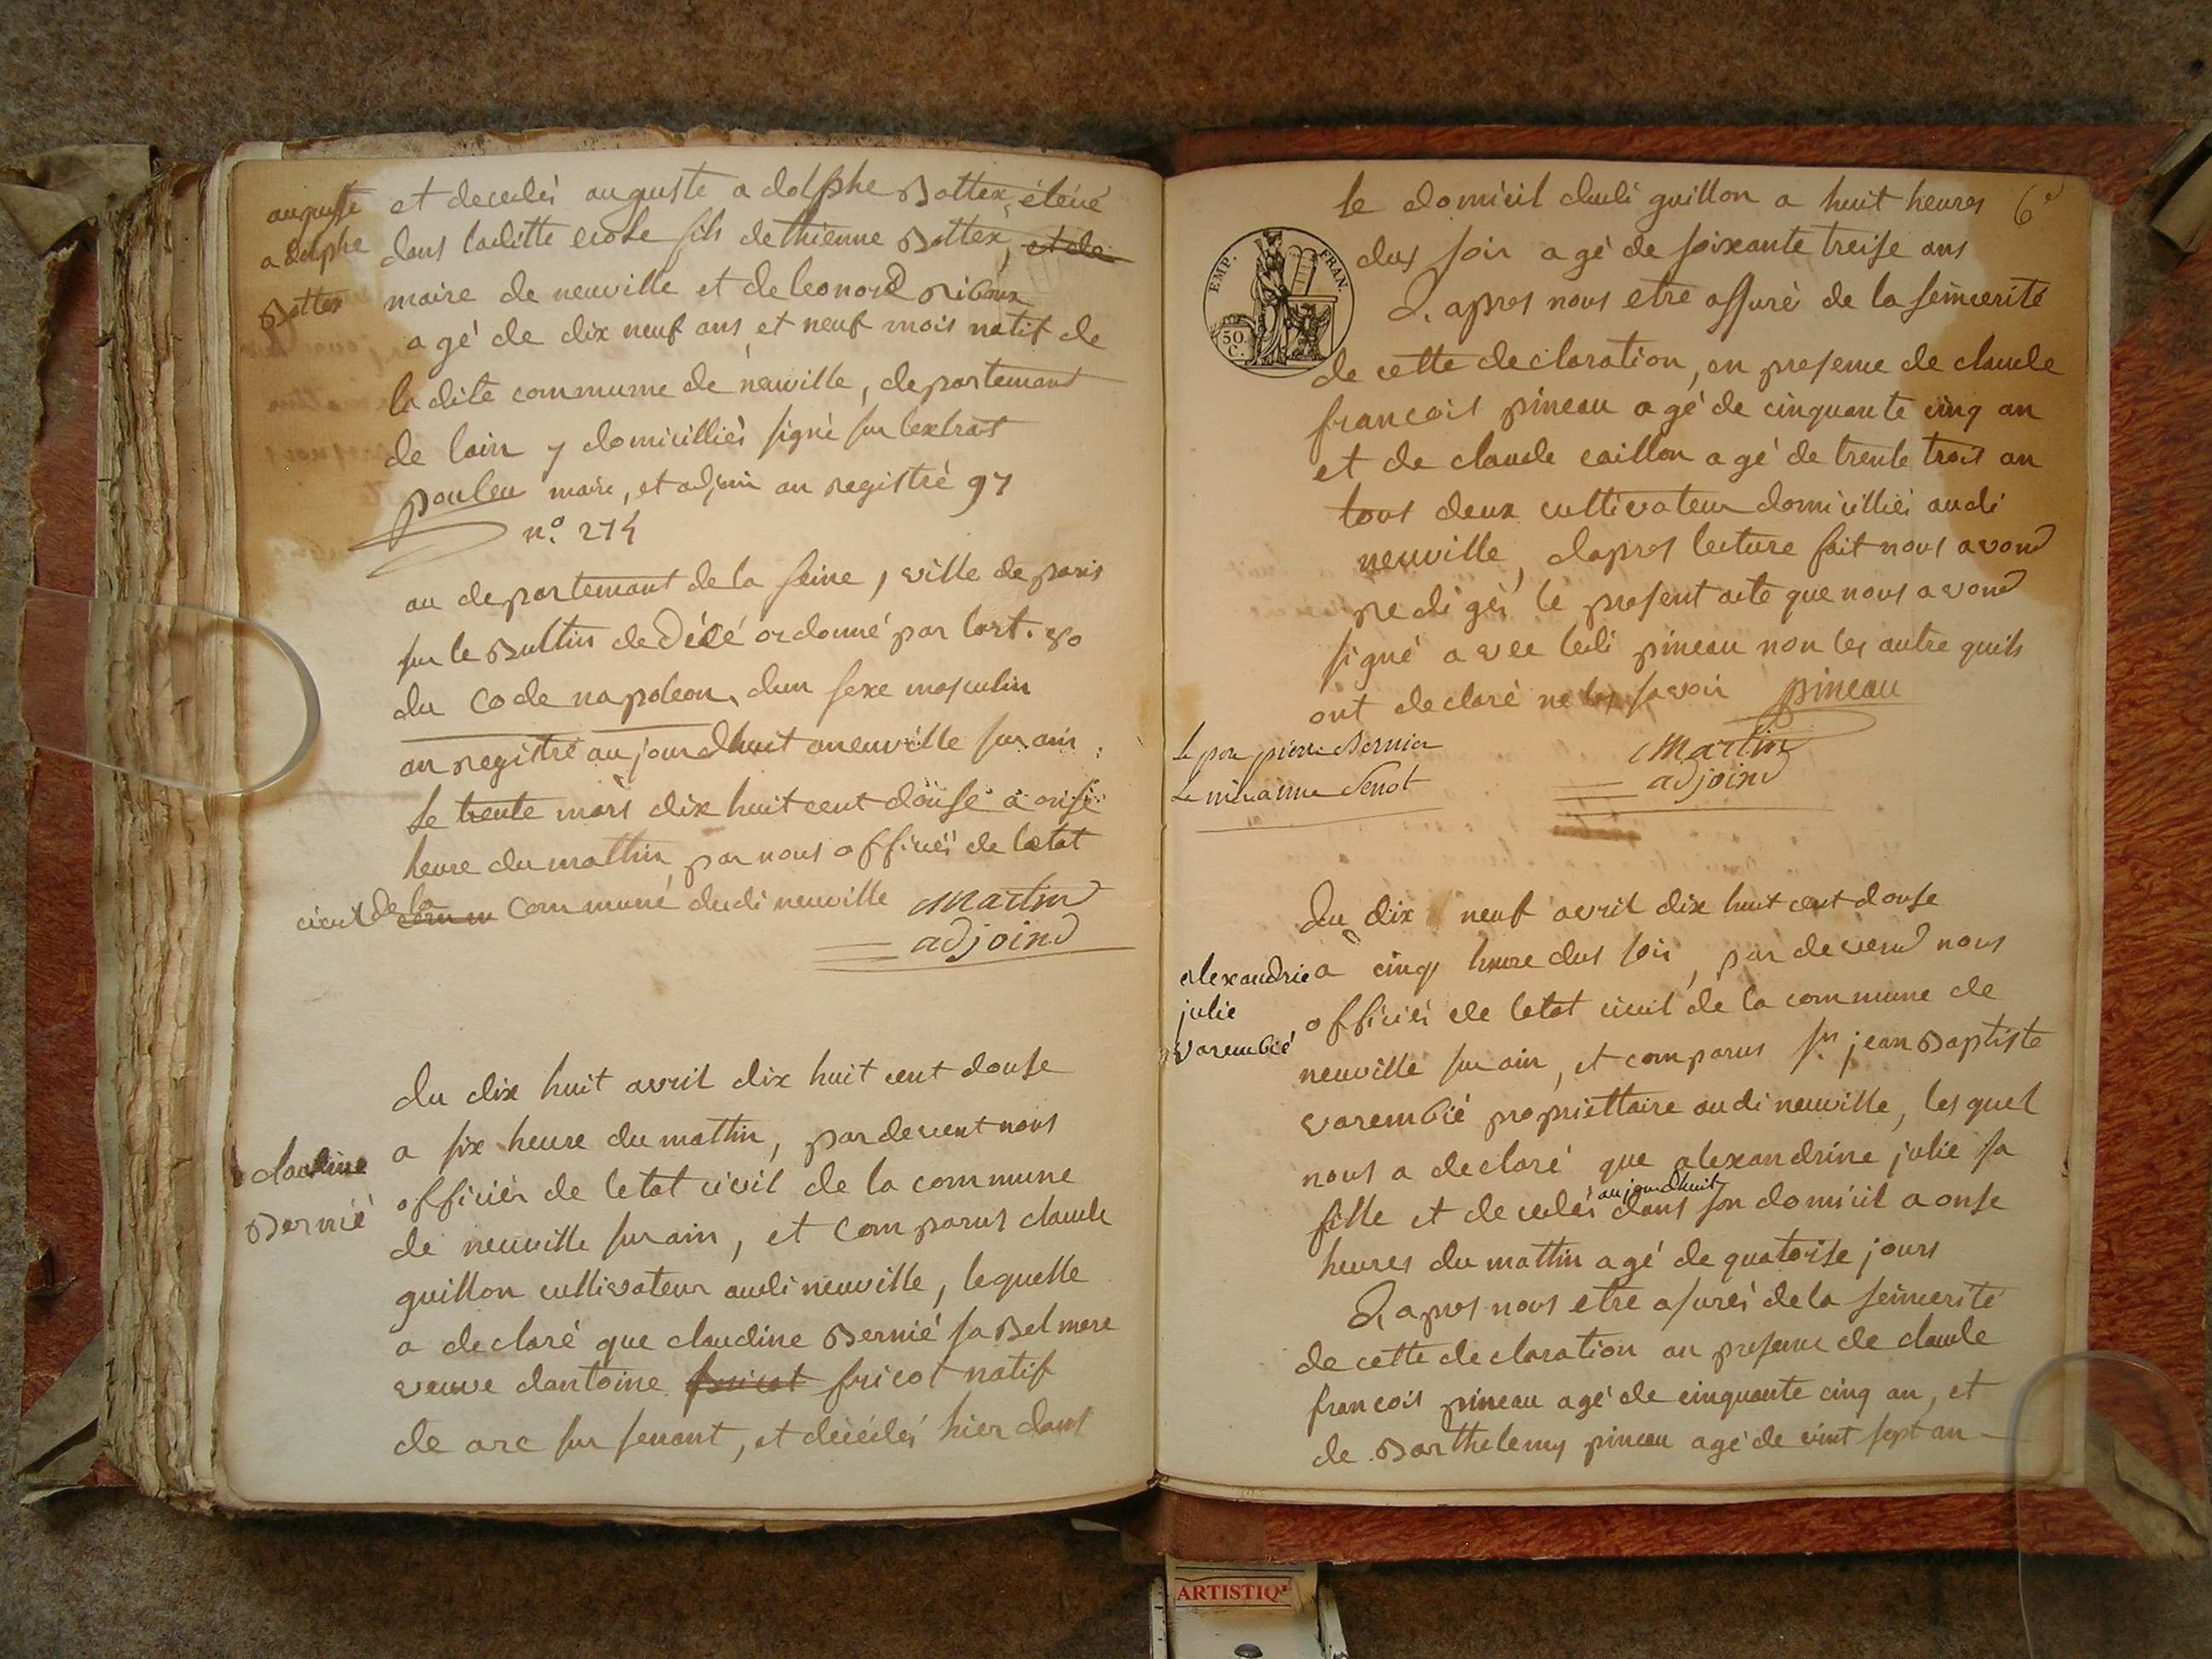 auguste
adolphe
Bottex
et decedes auguste adolphe Bottex, éléve
dans laditte ecole fils dethienne Bottex, et de
maire de neuville et de leonord riboux
agé de dix neuf ans et neuf mois natif de
ladite commune de neuville, departemand
de lain y domicilliés signé sur lextrait
maire, et adjoin au registré 97
n.º 274
au departemant de la seine, ville de paris
sur le Bultin de Décé ordonné par lart. 80
du Code napoleon, dun sexe masculin
an registré aujourdhuit aneuville sur ain
le trente mars dix huit cent douse a onse
heure du mattin par nous officiés de letat
civil de la comm Communé dudi neuville Martin
adjoind
claudine
Bernié
du dix huit avril dix huit cent douse
a six heure du mattin, pardevent nous
officiér de letat civil de la commune
de neuville sur ain, et comparus claude
guillon cultivateur audi neuville, lequelle
a declaré que claudine Bernié sa Bel mere
veuve dantoine fricot fricot natif
de arc sur senant, et décédés hier dans
6e
le domicil dudi guillon a huit heures
dus soir agé de soixante treise ans
EMP. FRAN.
50 C.
D, apres nous etre assuré de la seincerité
de cette declaration, en presense de claude
francois pineau agé de cinquante cinq an
et de claude caillon agé de trente trois an
tous deux cultivateur domicilliés audi
neuville, dapres lecture fait nous avond
redigés le present acte que nous avond
signé avec ledi pineau non les autre quils
ont declaré ne les savoir pineau
Martin
adjoind
Le pere pierre Bernier
La mere anne Senot
alexandrie
julie
varembié
du dix neuf avril dix huit cent douse
a cinq heure dus soir, par devend nous
officiés de letat civil de la commune de
neuville sur ain, et comparus sr jean Baptiste
varembié propriettaire audi neuville, lesquel
nous a declaré que alexandrine julie sa
fille et decedés aujourdhuit dans son domicil a onse
heures du mattin agé de quatorse jours
D, apres nous etre asurés de la seincerité
de cette declaration an presense de claude
francois pineau agé de cinquante cinq an, et
de Barthelemy pineau agé de vint sept an
ARTISTIQ